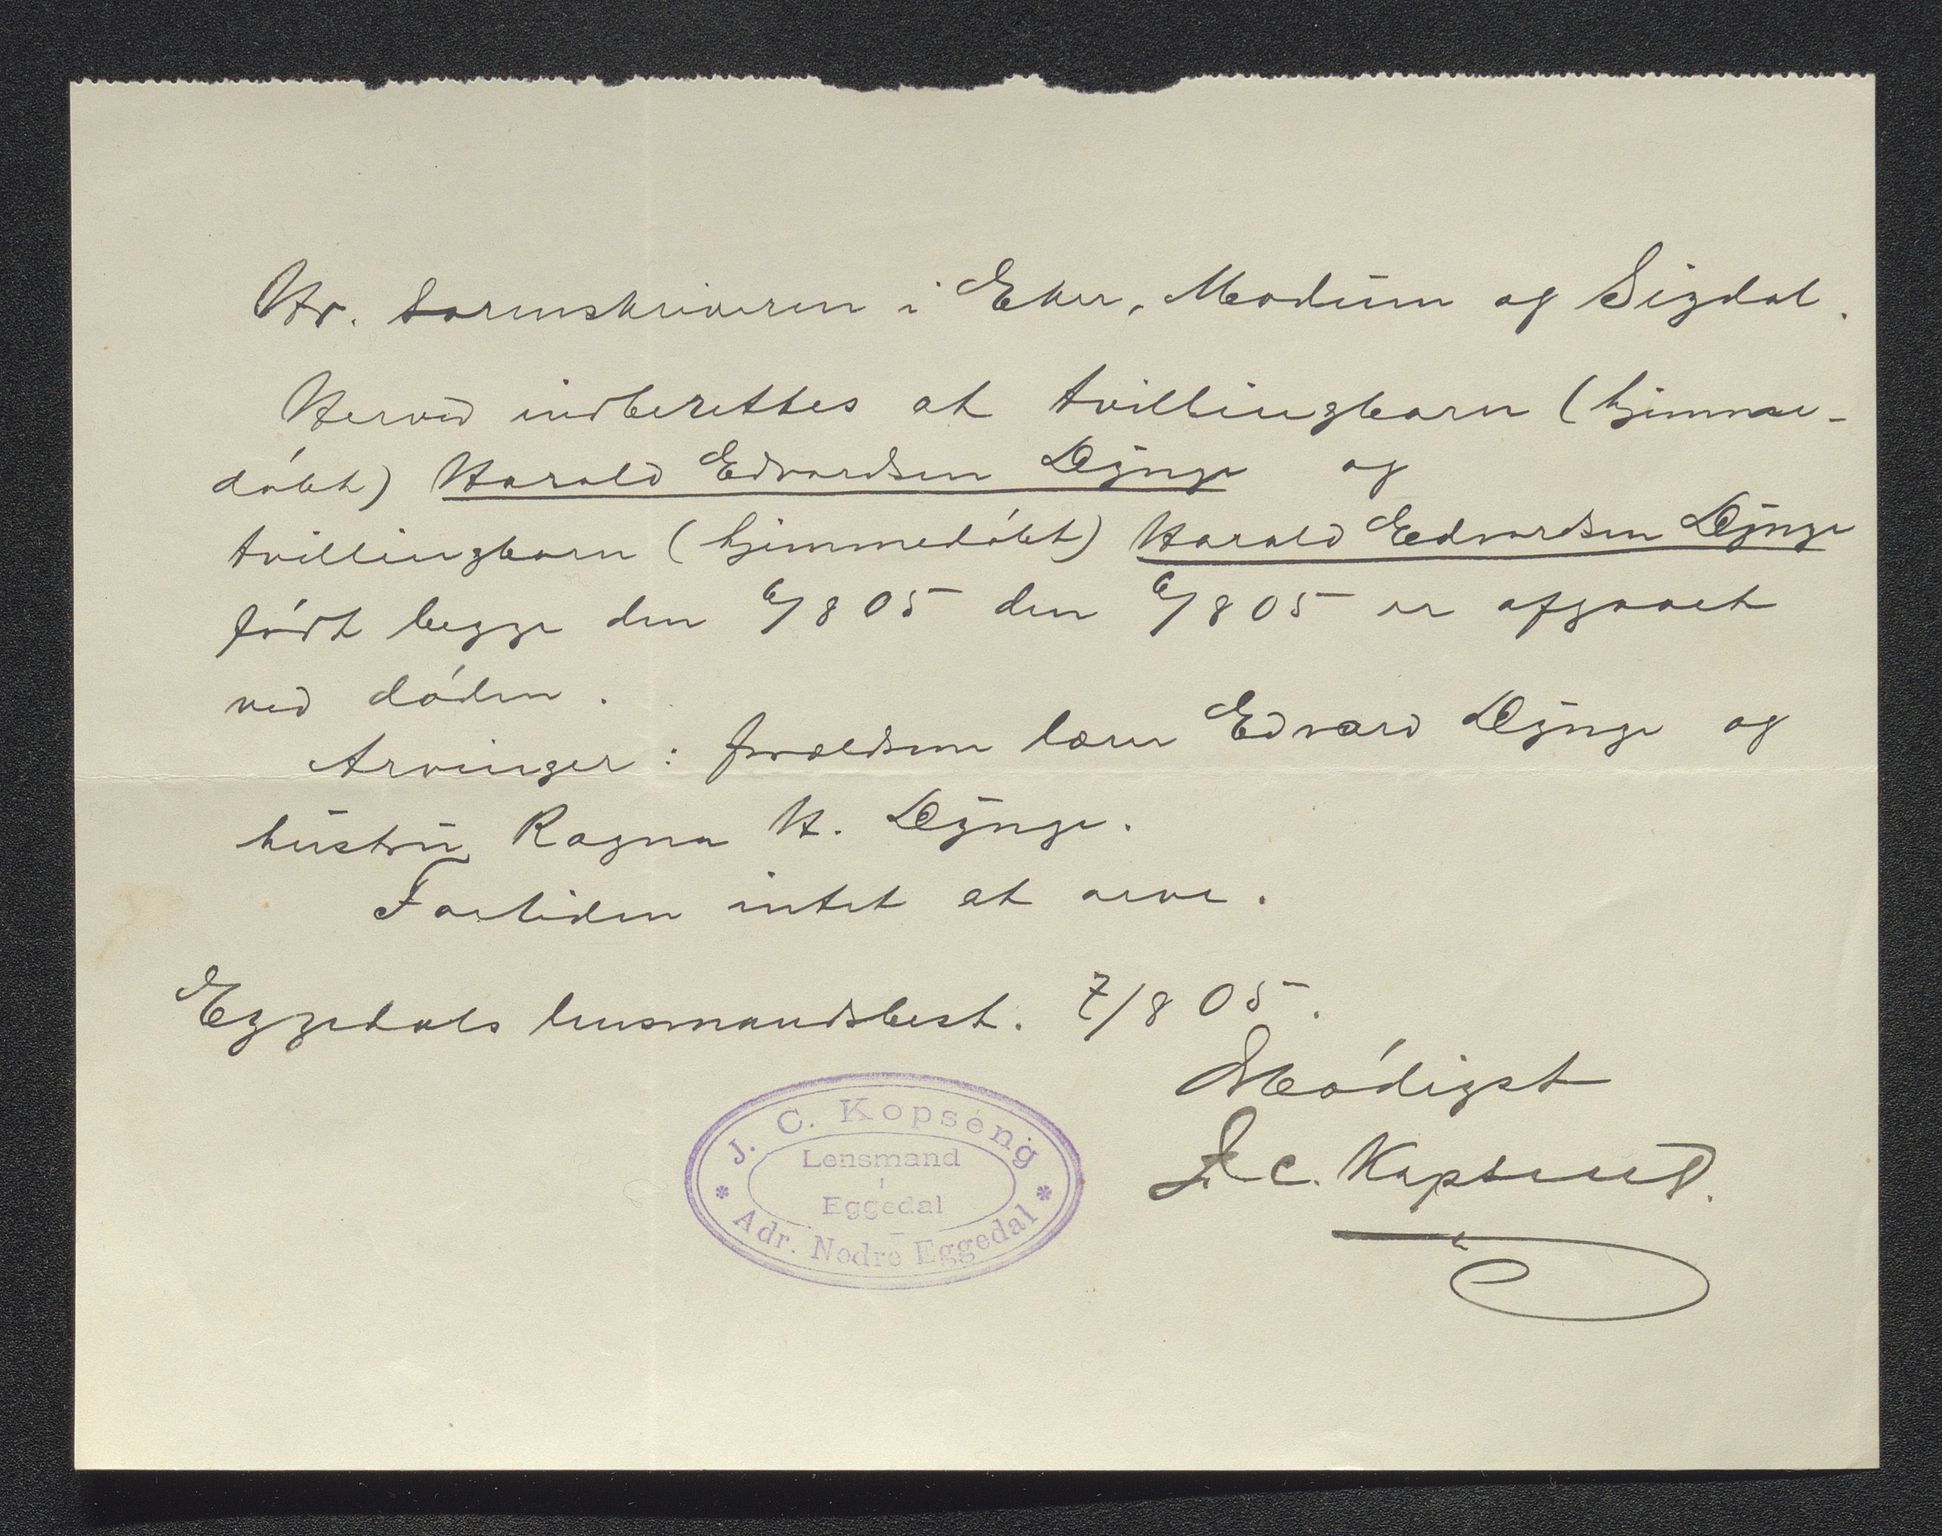 Hr. Sorenskriveren i Eker, Modum og Sigdal.
Herved indberettes at tvillingbarn (hjemme-
døbt) Harald Edvardsen Dynge og
tvillingbarn (hjemmedøbt) Harald Edvardsen Dynge
født begge den 6/8 05 den 6/8 05 er afgaaet
ved døden.
Arvinger: forældrene lærer Edvard Dynge og
hustru Ragna H. Dynge.
Fortiden intet at arve.
Eggedals lensmandsbest. 7/8 05.
Ærbødigst
J. C. Kopseng.
J. C. Kopseng
Lensmand
i
Eggedal
* Adr. Nedre Eggedal *